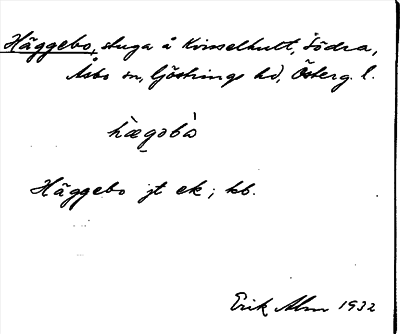 Häggebo, stuga å Kvisselhult, Södra,
Åsbo sn, Göstrings hd, Österg. l.
hægobò
Häggebo jt ek; kb.
Erik Alm 1932